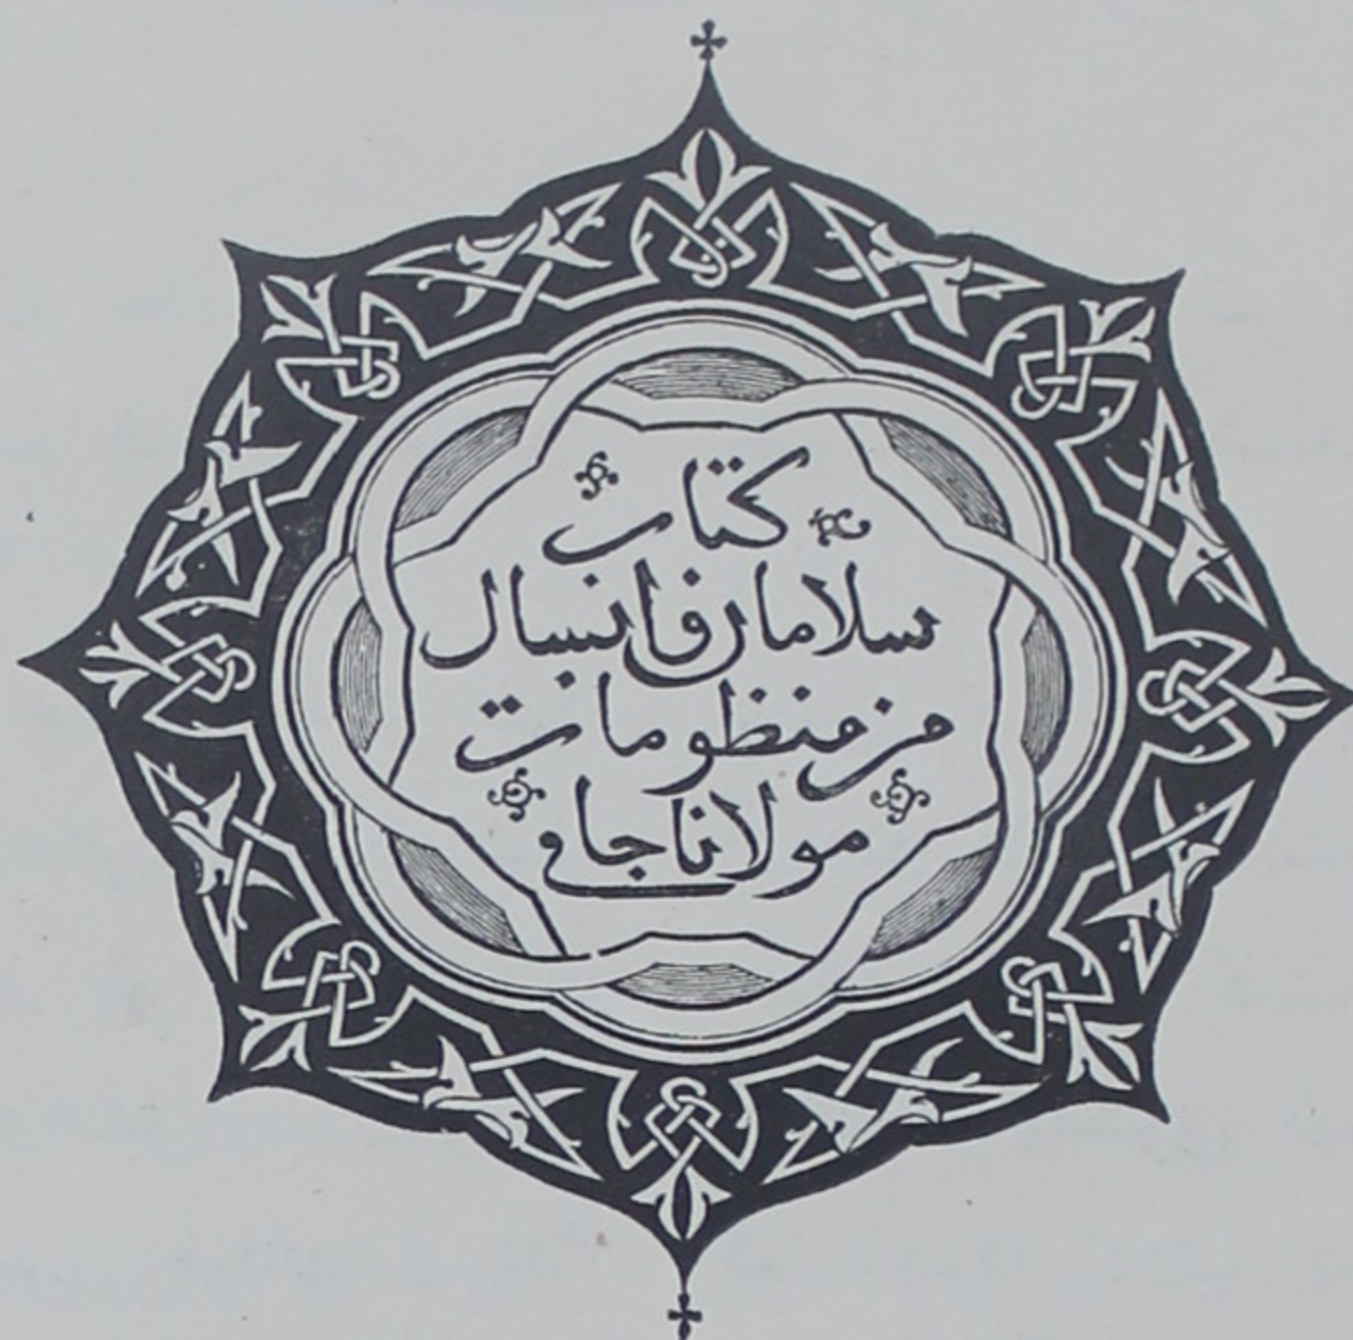 كتاب
سلامان وابسال
من منظومات
مولانا جامي